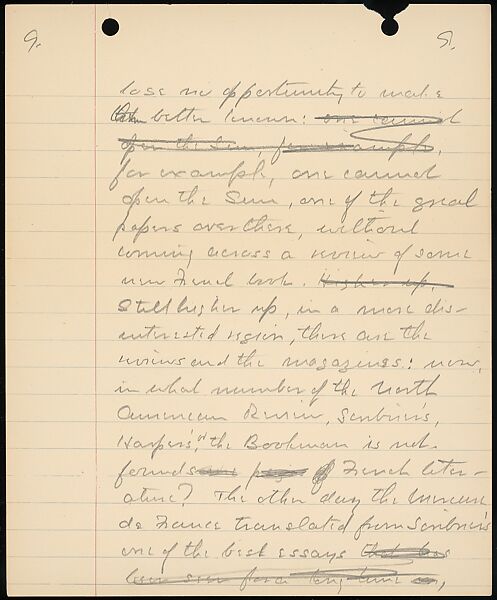 9. 9.
lose no opportunity to make
them better known: one cannot
open the Sun for example,
for example, one cannot
open the Sun, one of the great
papers over there, without
coming across a review of some
new French book. Higher up
Still higher up, in a more dis-
interested region, there are the
reviews and the magazines: now,
in what number of the North
American Review, Scribner's,
Harper's, or the Bookman is not
found some page of French liter-
ature? The other day the Mercure
de France translated from Scribner's
one of the best essays that has
been seen for a long time on,